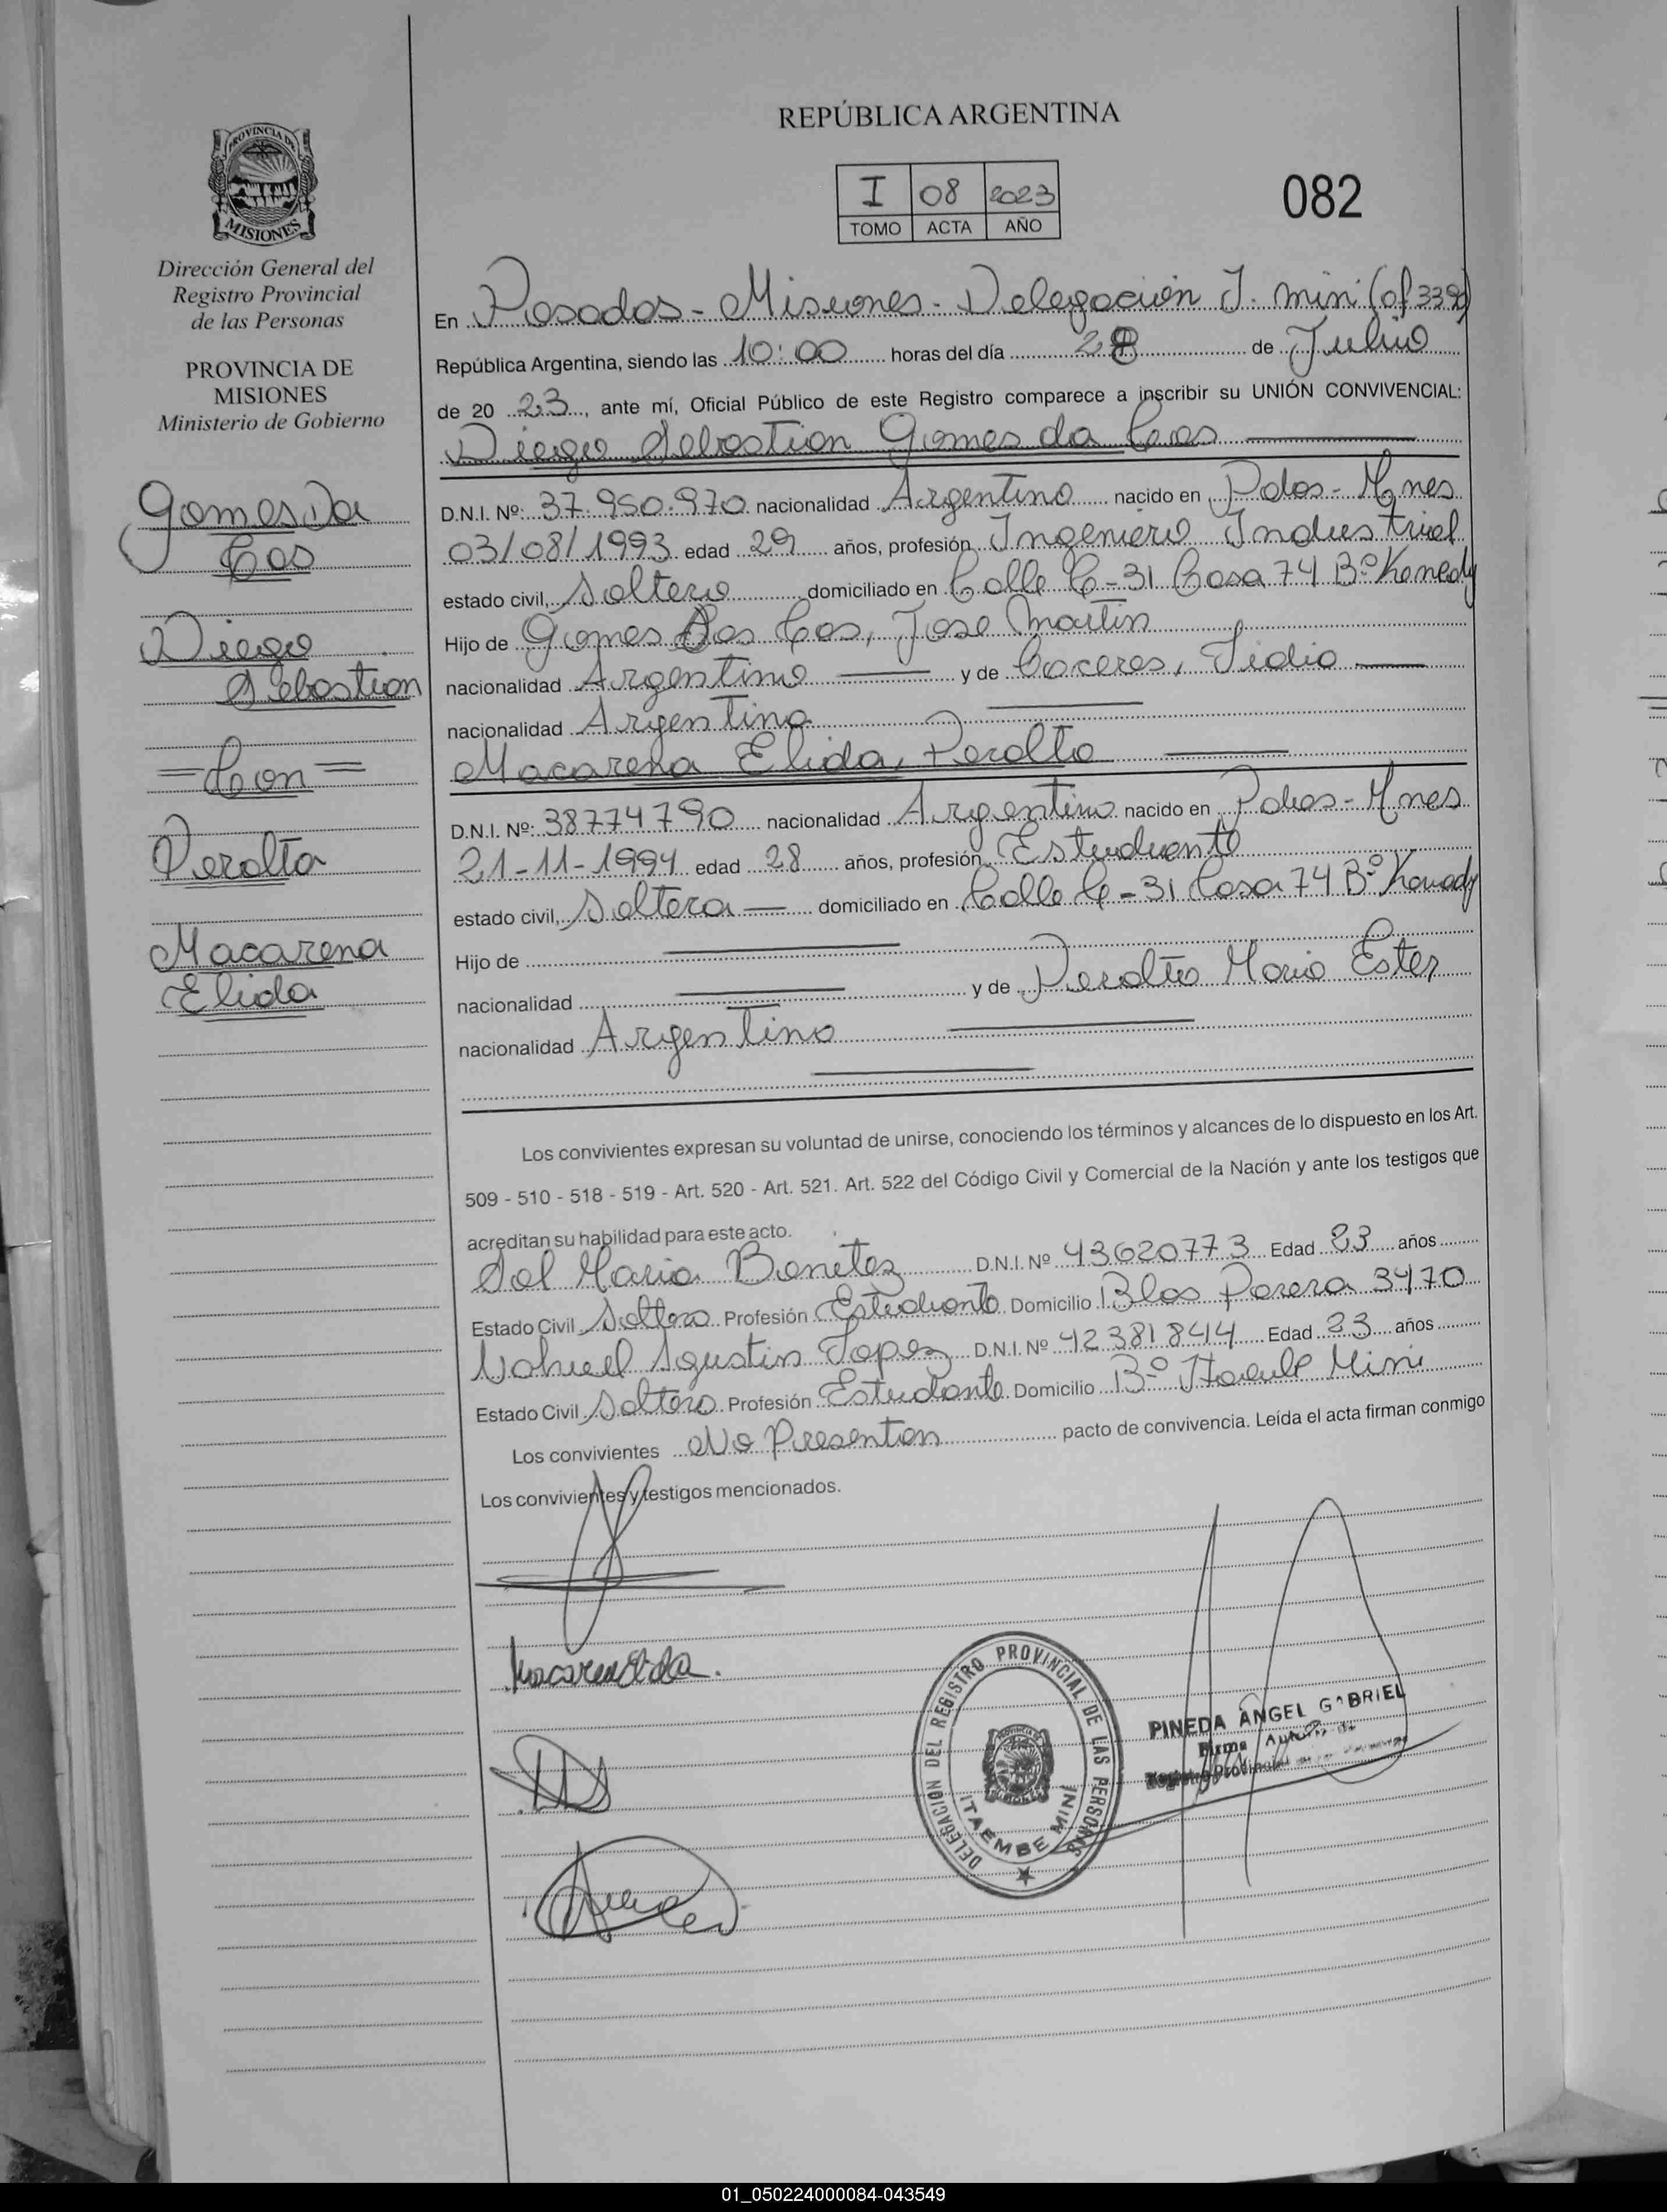 REPÚBLICA ARGENTINA
I 08 2023
TOMO ACTA AÑO
082
PROVINCIA DE
MISIONES
Dirección General del
Registro Provincial
de las Personas
PROVINCIA DE
MISIONES
Ministerio de Gobierno
Gomes Da
Cos
Diego
Sebastian
=Con=
Peralta
Macarena
Elida
En Posadas - Misiones - Delegación I. mini (of 3390)
República Argentina, siendo las 10:00 horas del día 28 de Julio
de 20 23, ante mí, Oficial Público de este Registro comparece a inscribir su UNIÓN CONVIVENCIAL:
Diego Sebastian Gomes da Cos
D.N.I. Nº: 37.950.970 nacionalidad Argentino nacido en Pdas - Mnes
03/08/1993 edad 29 años, profesión Ingeniero Industrial
estado civil, Soltero domiciliado en Calle C-31 Casa 74 Bº Kenedy
Hijo de Gomes Das Cos, Jose Martin
nacionalidad Argentino y de Caceres, Lidia
nacionalidad Argentina
Macarena Elida Peralta
D.N.I. Nº: 38774790 nacionalidad Argentina nacido en Pdas - Mnes
21-11-1994 edad 28 años, profesión Estudiante
estado civil, Soltera domiciliado en Calle C-31 Casa 74 Bº Kenedy
Hijo de
nacionalidad y de Peralta Maria Ester
nacionalidad Argentina
Los convivientes expresan su voluntad de unirse, conociendo los términos y alcances de lo dispuesto en los Art.
509 - 510 - 518 - 519 - Art. 520 - Art. 521. Art. 522 del Código Civil y Comercial de la Nación y ante los testigos que
acreditan su habilidad para este acto.
Sol Maria Benitez D.N.I. Nº 43620773 Edad 23 años
Estado Civil Soltera Profesión Estudiante Domicilio Blas Parera 3470
Nahuel Agustin Lopez D.N.I. Nº 42381844 Edad 23 años
Estado Civil Soltero Profesión Estudiante Domicilio Bº Mini
Los convivientes No Presentan pacto de convivencia. Leída el acta firman conmigo
Los convivientes y testigos mencionados.
DELEGACION DEL REGISTRO PROVINCIAL DE LAS PERSONAS
ITAEMBE MINI
PINEDA ANGEL GABRIEL
Firma
01_050224000084-043549